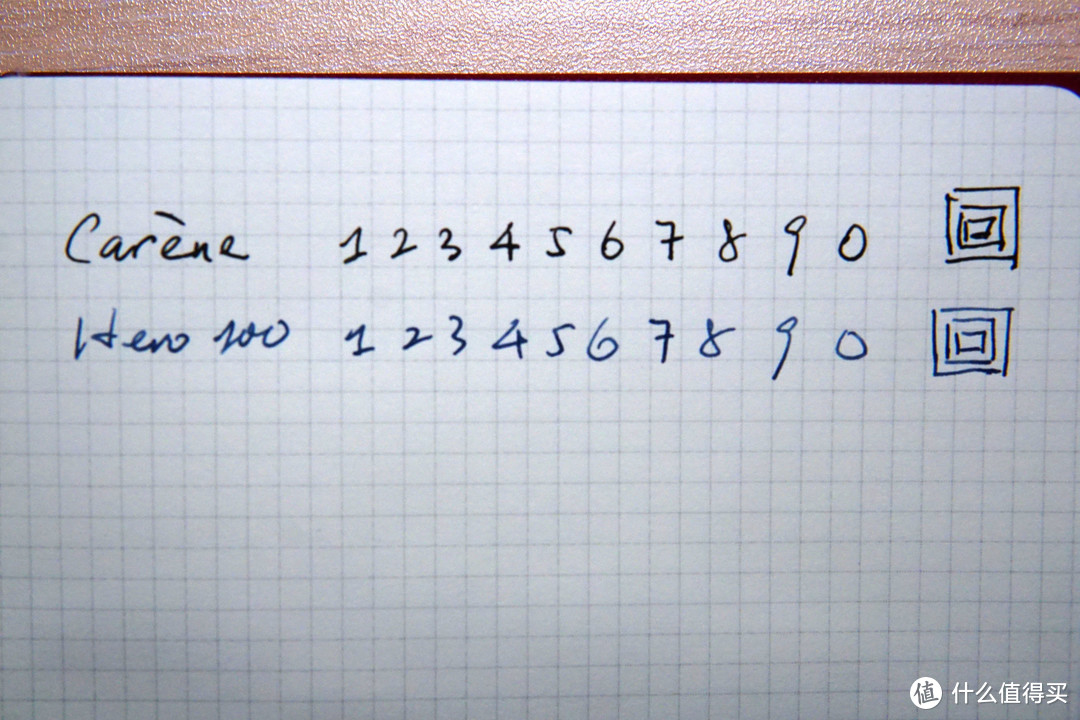 Carène 1 2 3 4 5 6 7 8 9 0 回
Hero 100 1 2 3 4 5 6 7 8 9 0 回
值 什么值得买